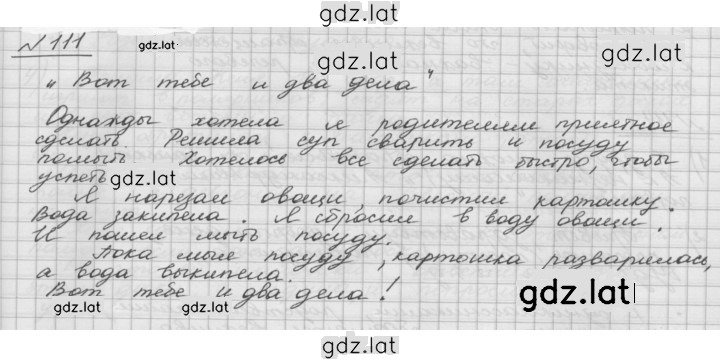 gdz.lat
№ 111
gdz.lat
gdz.lat
„Вот тебе и два дела"
Однажды хотела я родителям приятное
сделать. Решила суп сварить и посуду
помыть. Хотелось все сделать быстро, чтобы
успеть
gdz.lat
Я нарезал овощи, почистил картошку.
Вода закипела. Я сбросил в воду овощи.
И пошел мыть посуду.
Пока мыл посуду, картошка разварилась,
а вода выкипела.
Вот тебе и два дела!
gdz.lat
gdz.lat
gdz.lat